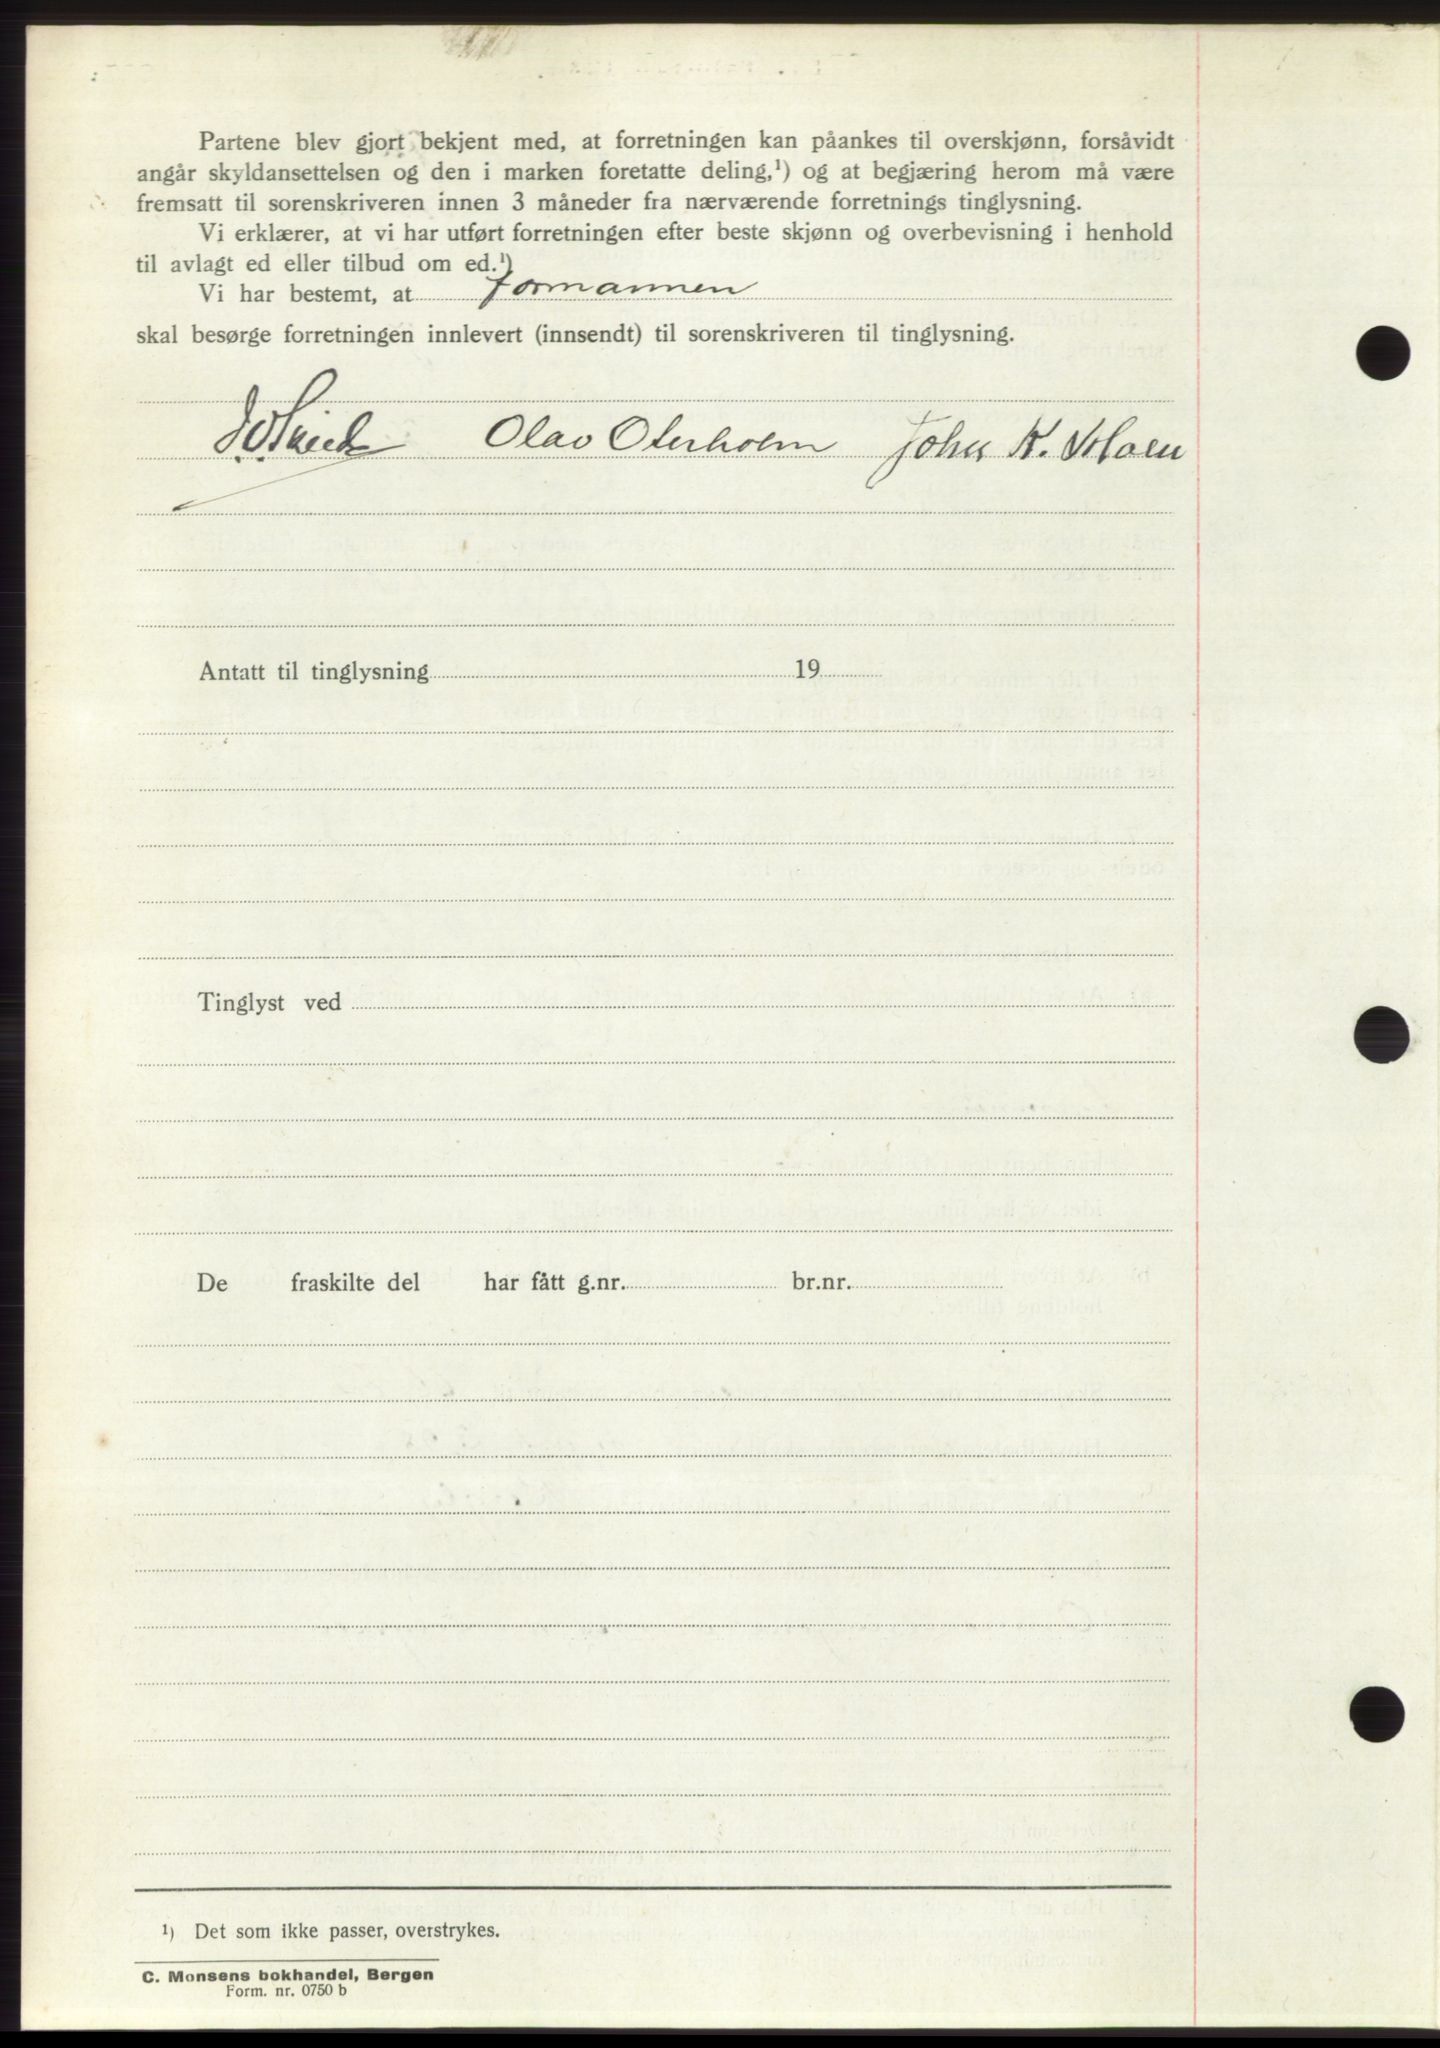 Partene blev gjort bekjent med, at forretningen kan påankes til overskjønn, forsåvidt
angår skyldansettelsen og den i marken foretatte deling,¹) og at begjæring herom må være
fremsatt til sorenskriveren innen 3 måneder fra nærværende forretnings tinglysning.
Vi erklærer, at vi har utført forretningen efter beste skjønn og overbevisning i henhold
til avlagt ed eller tilbud om ed.¹)
Vi har bestemt, at formannen
skal besørge forretningen innlevert (innsendt) til sorenskriveren til tinglysning.
Olav Oterholm John K.
Antatt til tinglysning 19
Tinglyst ved
De fraskilte del har fått g.nr. br.nr.
¹) Det som ikke passer, overstrykes.
C. Monsens bokhandel, Bergen
Form. nr. 0750 b